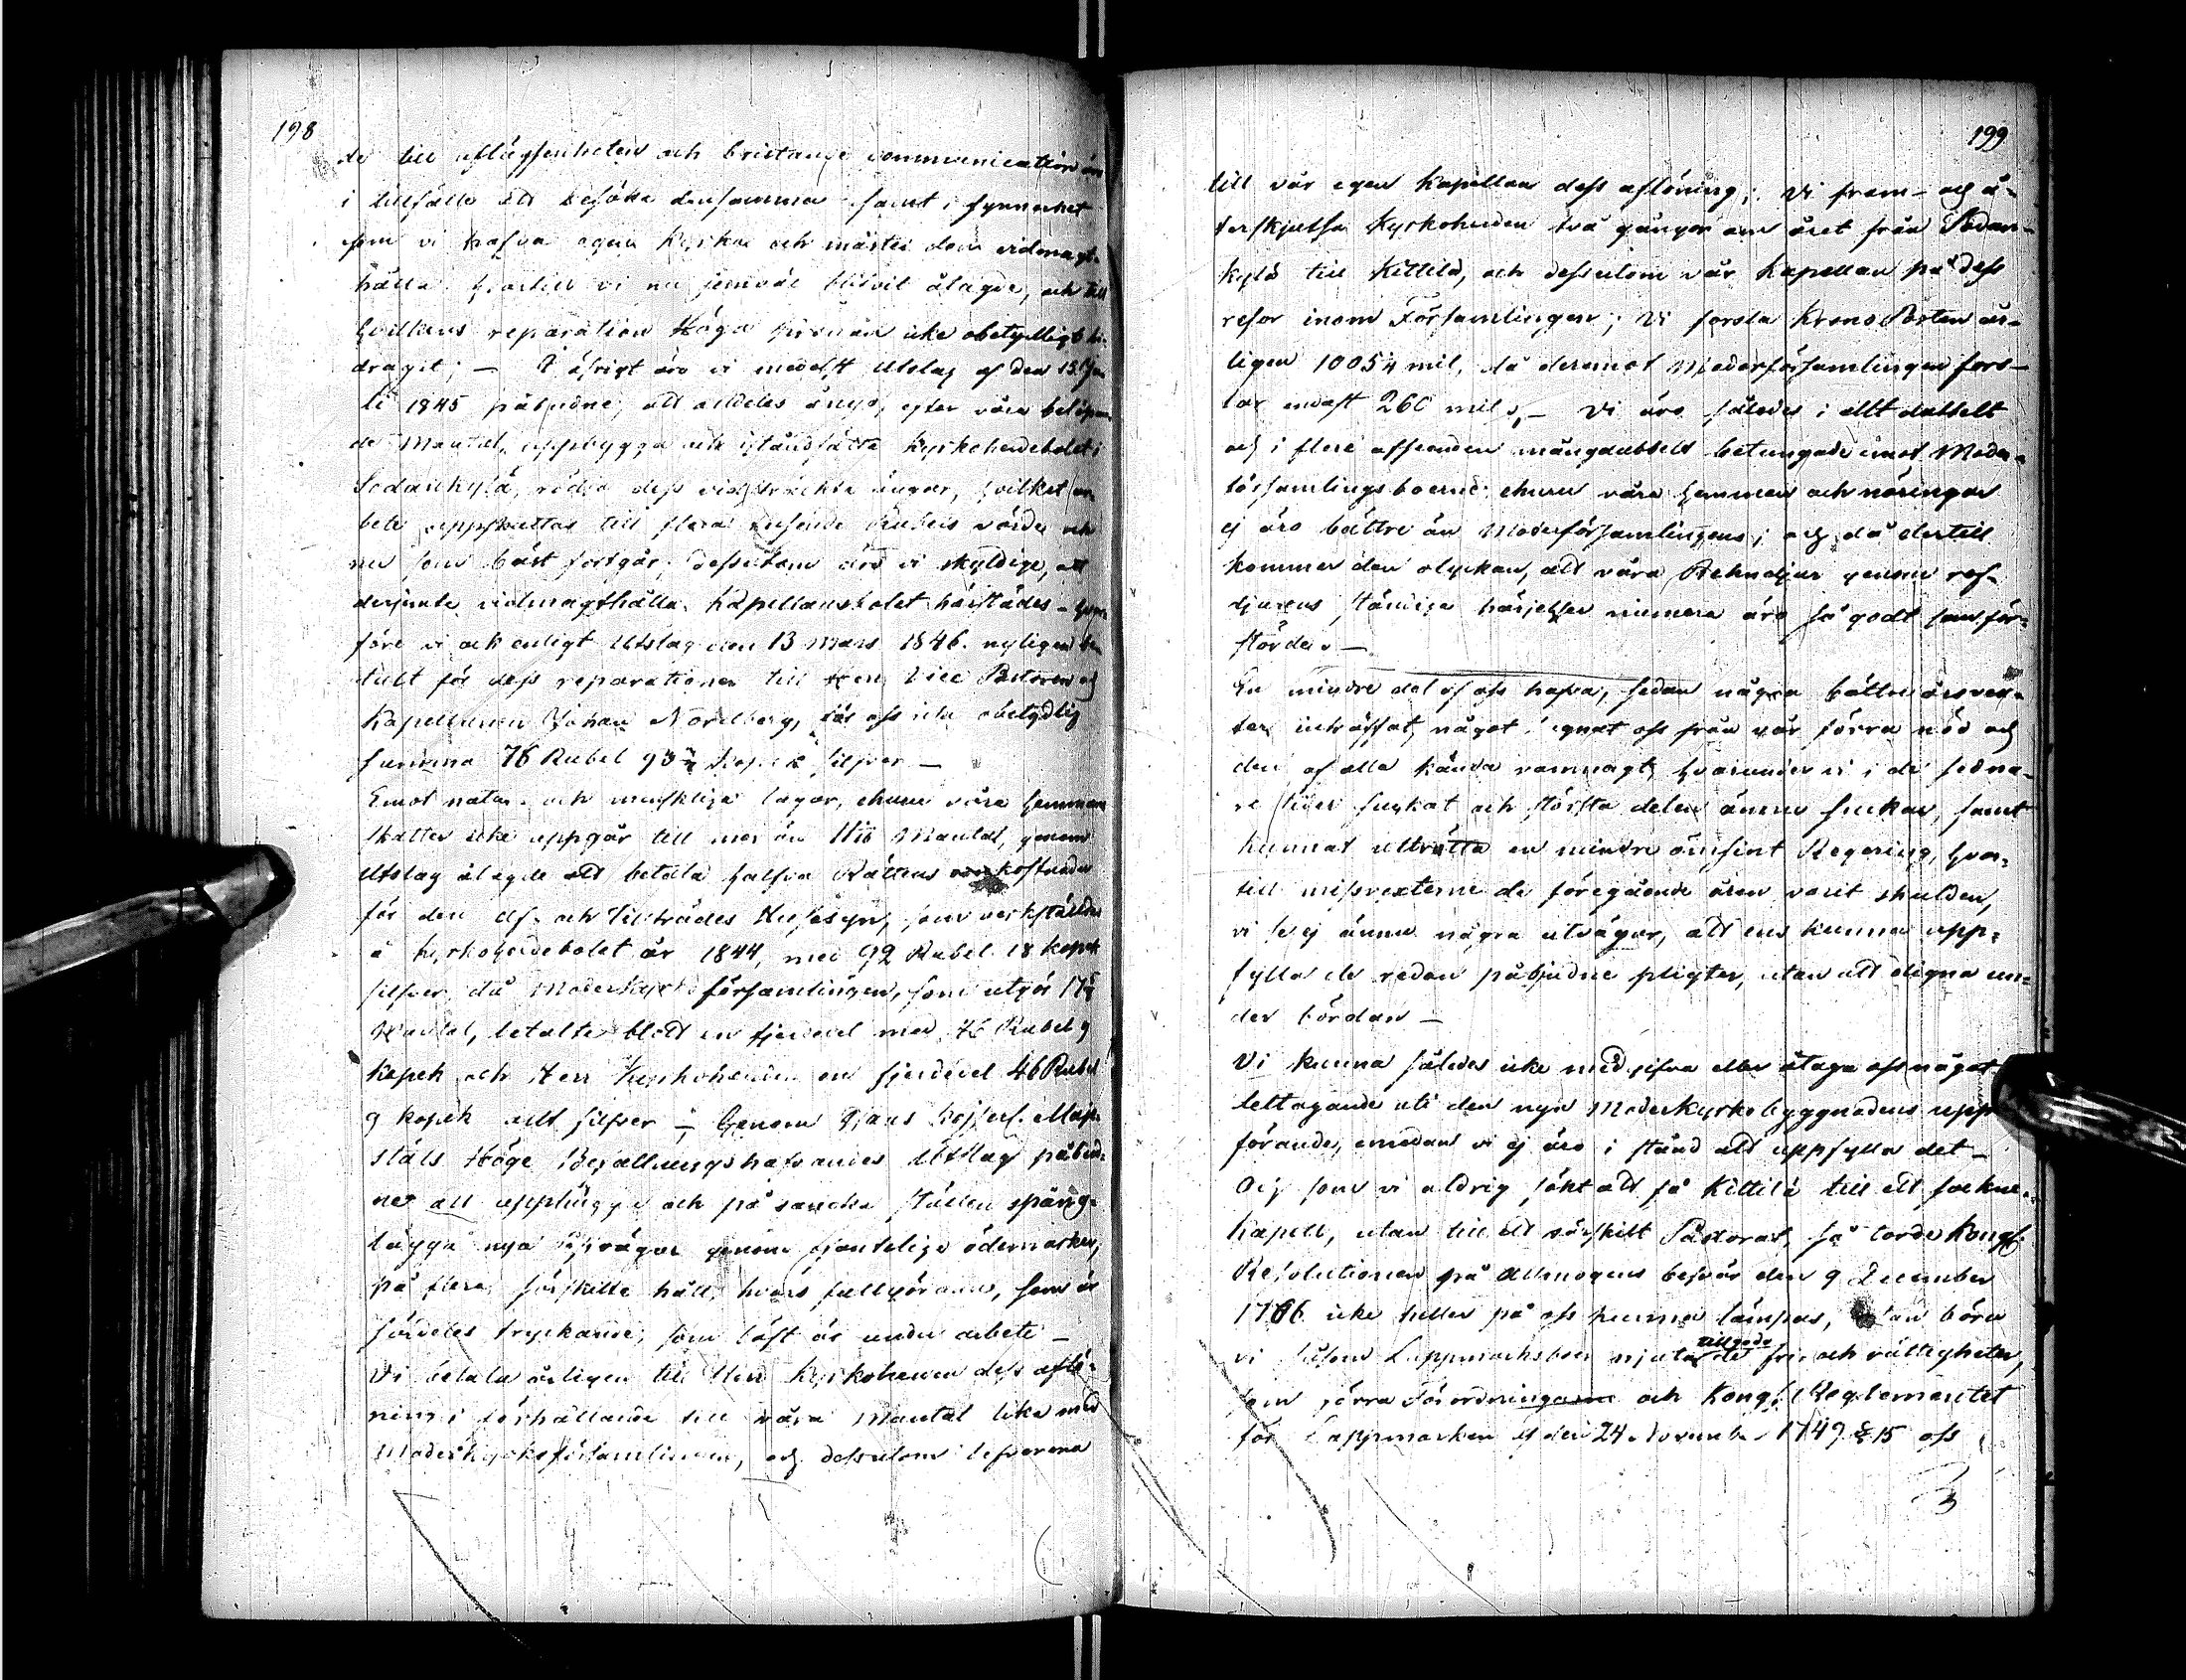 198
de till aflägsenheten och bristande communication äro
i tillfälle att besöka densamma samt i synnerhet
som vi hafva egen Kyrka och måste den vidmagt-
hålla, hvartill vi nu jemväl blifvit ålagde, och till
hvilkens reparation Höga Kronan icke obetydligt bi-
dragit; — I öfrigt äro vi medelst Utslag af den 13 Ju-
li 1845 påbudne, att alldeles ånyo, efter våra belöpan-
de Mantal, uppbygga och iståndsätta Kyrkoherdebolet i
Sodankylä, rödja dess vidsträckta ängar, hvilket ar-
bete uppskattas till flera tusende Rubels värde och
nu som bäst fortgår; dessutom äro vi skyldige, att
derjemte vidmagthålla Kapellansbolet härstädes -
före vi ock enligt Utslag den 13 Mars 1846. nyligen be-
talt för dess reparationer till Herr Vice Pastoren och
Kapellanen Johan Nordberg, för oss icke obetydlig
summa 76 Rubel 93 Kopek silfver —
Emot natur- och menskliga lagar, ehuru våra hemmans
skatter icke uppgår till mer än Mantal, genom
Utslag ålagde att betala halfva Rättens kostnader
för den Af- och Tillträdes Husesyn, som verkställdes
å Kyrkoherdebolet år 1844, med 92 Rubel 18 kopek
silfver, då Moderkyrko församlingen, som utgör
Mantal, betalte blott en fjerdedel med 46 Rubel 9
kopek och Herr Kyrkoherden en fjerdedel 46 Rubel
9 kopek allt silfver —; Genom Hans Kejserl. Maje-
stäts Höge Befallningshafvandes Utslag påbud-
ne att upphugga och på sancka ställen spång-
lägga nya vägar genom ödemarker,
på flera särskilta håll, hvars fullgörande, som är
särdeles tryckande, som bäst är under arbete —
Vi betala årligen till Herr Kyrkoherden dess aflö-
ning i förhållande till våra Mantal lika med
Moderkyrkoförsamlingen, och dessutom lefverera
199
till vår egen Kapellan dess aflöning; Vi fram- och å-
terskjutsa Kyrkoherden två gångor om året från Sodan-
kylä till Kittilä, och dessutom vår Kapellan på dess
resor inom Församlingen; Vi forsla Krono Posten år-
ligen 10054 mil, då deremot Moderförsamlingen fors-
lar endast 260 mil, — Vi äro således i allt dubbelt
och i flere afseenden mångdubbelt betungade emot Moder-
församlingsboerne ehuru våra hemman och näringar
ej äro bättre än Moderförsamlingens; och då dertill
kommer den olyckan, att våra Rehndjur genom rof-
djurens ständiga härjelser numera äro så godt som för-
störde. —
En mindre del af oss hafva, sedan några bättre årsvex-
ter inträffat, något egnat oss från vår förra nöd och
den af alla kända vanmagt, hvarunder vi i de sedna-
re tider suckat och största delen ännu suckar, samt
kunnat uttrötta en mindre ömsint Regering, hvar-
till missvexterne de föregående åren varit skulden,
vi se ej ännu några utvägar, att ens kunna upp-
fylla de redan påbjudne pligter, utan att digna un-
der bördan —
Vi kunna således icke medgifva eller åtaga oss något
deltagande uti den nya Moderkyrkobyggnadens upp-
förande, emedan vi ej äro i stånd att uppfylla det —
Och som vi aldrig sökt att få Kittilä till ett sockne-
Kapell, utan till ett särskilt Pastorat, så torde Kongl.
Resolutionen på Allmogens besvär den 9 December
1766 icke heller på oss kunna lämpas, utan böra
vi såsom Lappmarksboer njuta tillgodo de fri- och rättigheter,
som förra Förordningarne och Kongl. Reglementet
för Lappmarken af den 24 November 1749 § 15 oss